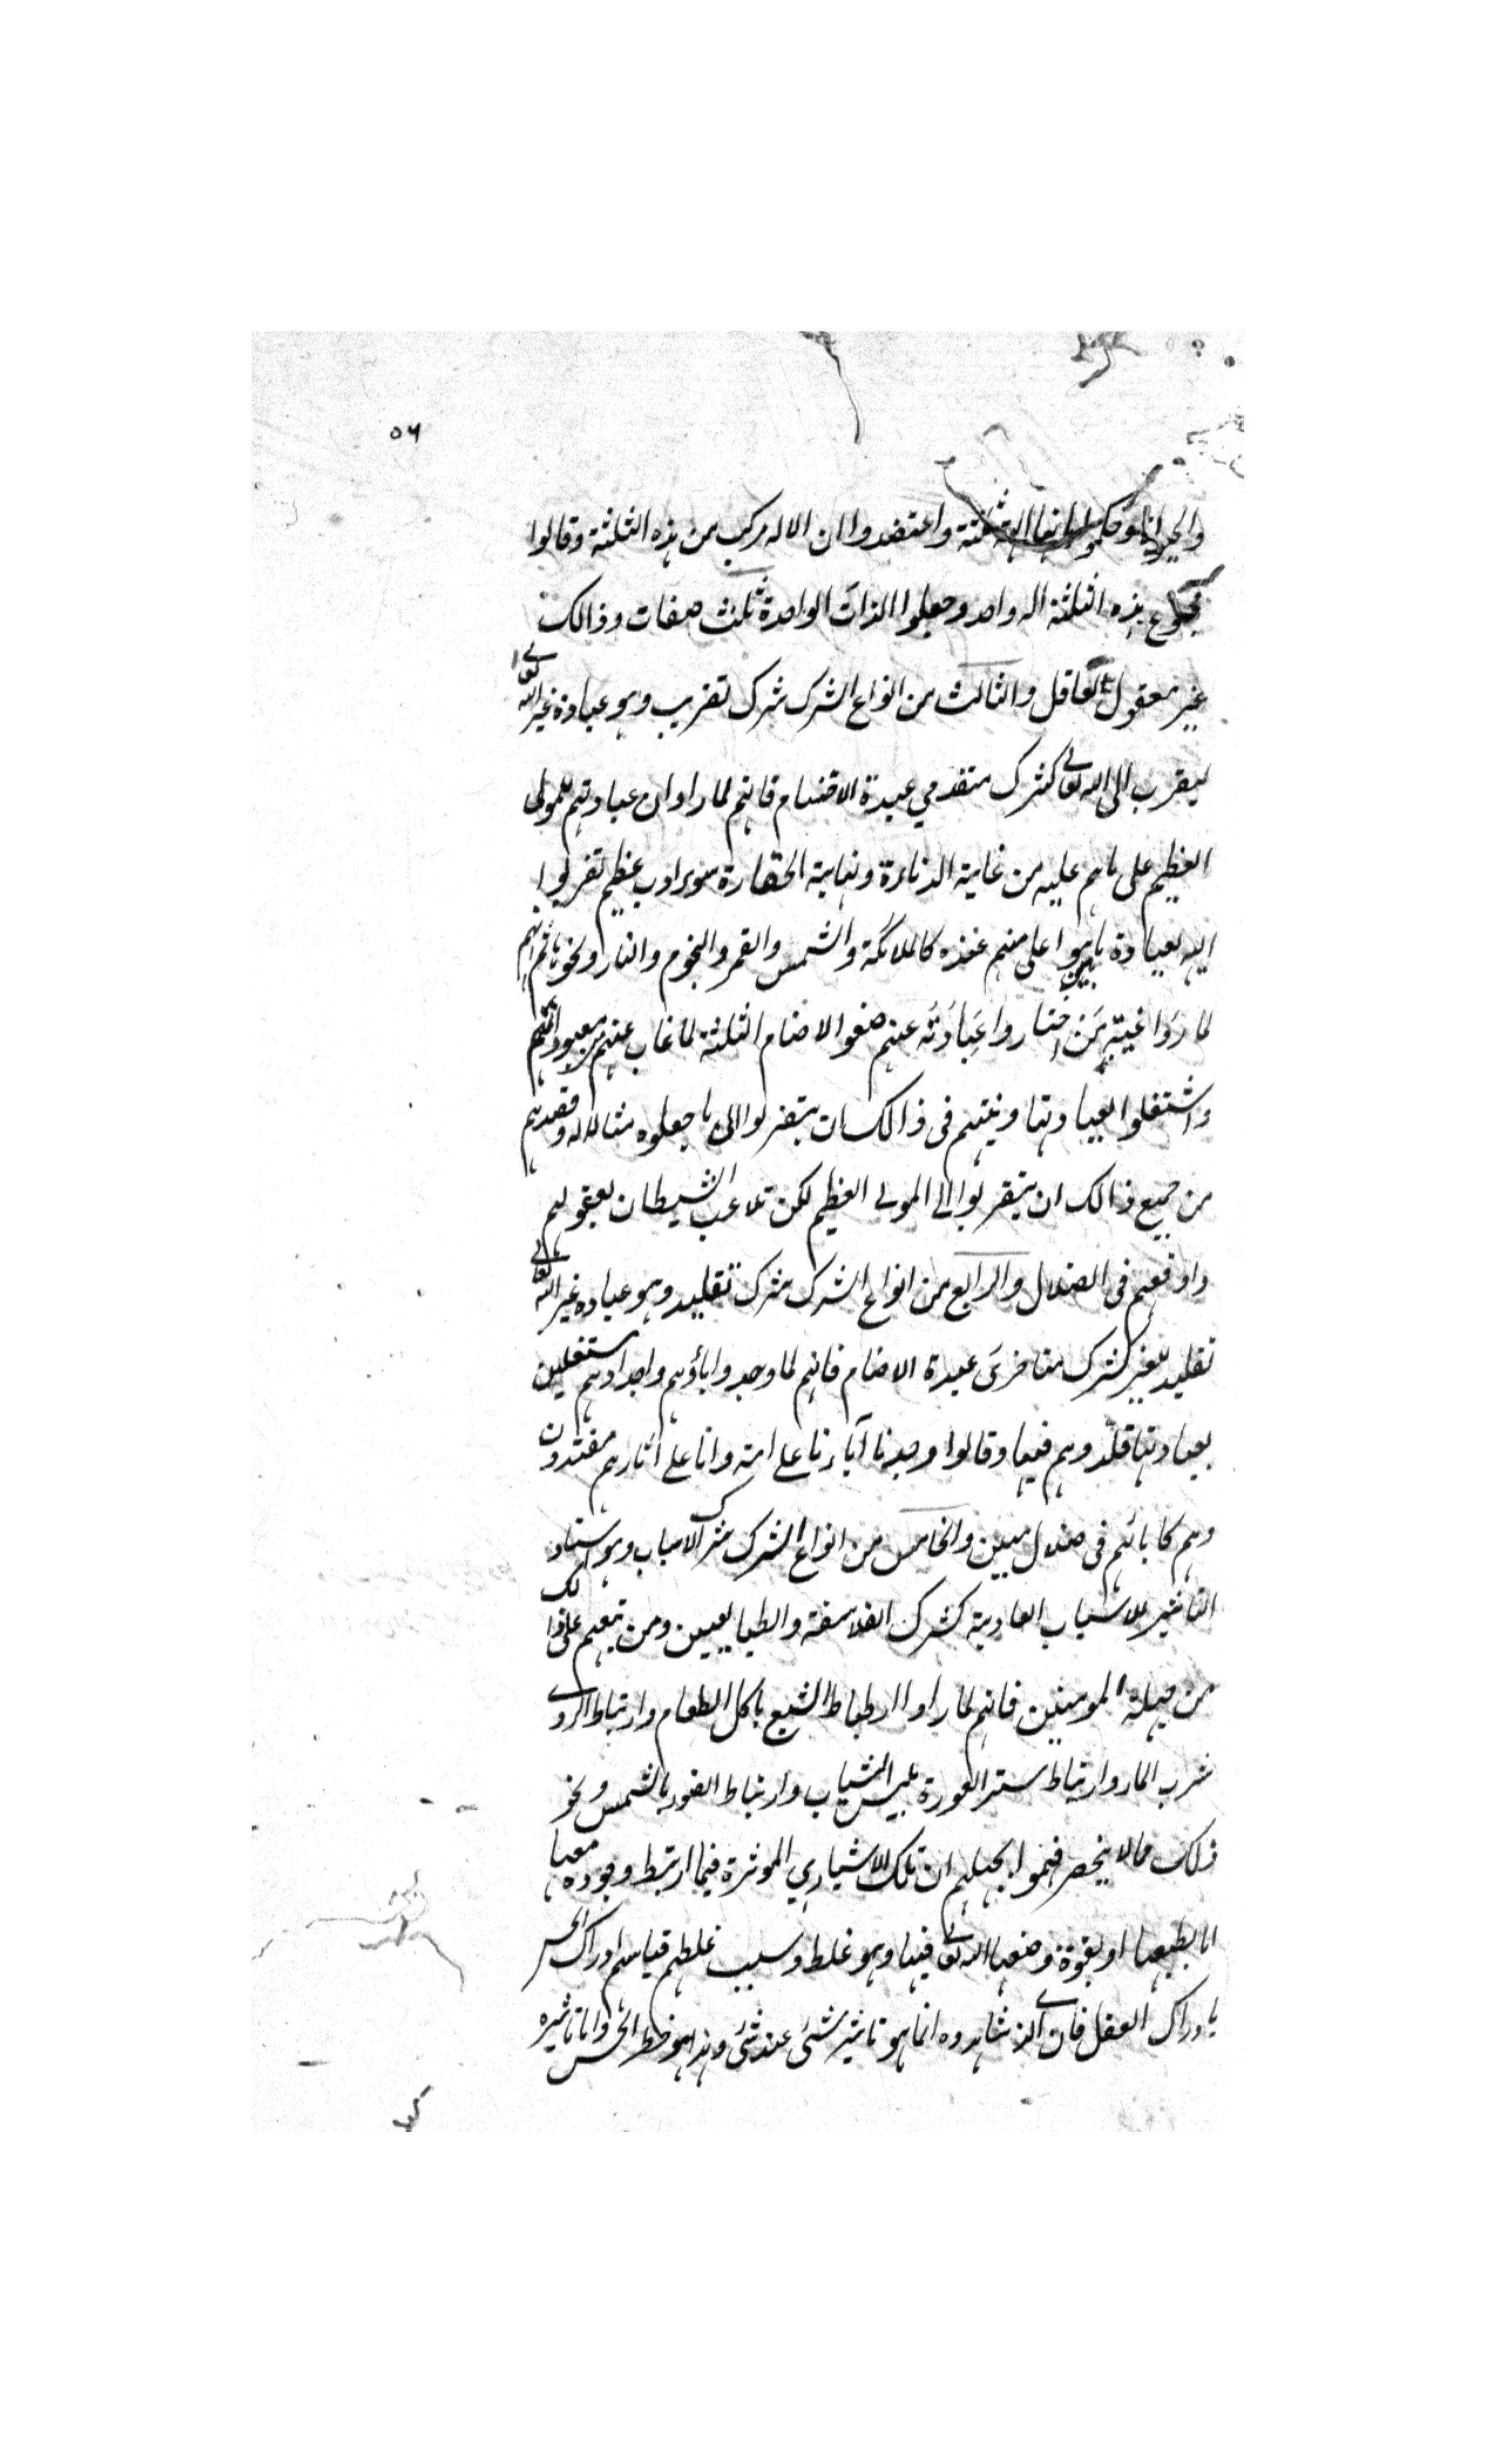 ٥٦
والحيوة وحكموا بانها الهة ثلثة واعتقدوا ان الاله مركب من هذه الثلثة وقالوا
مجموع هذه الثلثة اله واحد وجعلوا الذات الواحدة ثلث صفات وذالك
غير معقول لعاقل والثالث من انواع الشرك شرك تقريب وهو عبادة غير الله تعالى
ليقرب الى الله تعالى كشرك متقدمي عبدة الاصنام فانهم لما راوا ان عبادتهم للمولى
العظيم على ما هم عليه من غاية الدناءة ونهاية الحقارة سوء ادب عظيم تقربوا
اليه بعبادة ما هو اعلى منهم عنده كالملائكة والشمس والقمر والنجوم والنار ونحوها ثم انهم
لما رَوَا غيبة مَن اختاروا عِبَادَتَه عنهم صنعوا الاصنام الثلثة لما غاب عنهم من معبوداتهم
واشتغلوا بعبادتها ونيتهم فى ذالك ان يتقربوا الى ما جعلوه مثالا له وقصدهم
من جميع ذالك ان يتقربوا الى المولى العظيم لكن تلاعب الشيطان بعقولهم
واوقعهم فى الضلال والرابع من انواع الشرك شرك تقليد وهو عباده غير الله تعالى
تقليد للغير كشرك متاخرىَ عبدة الاصنام فانهم لما وجدوا اباؤهم واجدادهم مشتغلين
بعبادتها قلّدوهم فيها وقالوا وجدنا آباءنا على امة وانا على اثارهم مقتدون
وهم كابائهم فى ضلال مبين والخامس من انواع الشرك شرك الاسباب وهو اسناد
التاثير للاسباب العادية كشرك الفلاسفة والطبايعيين ومن تبعهم على ذالك
من جهلة المومنين فانهم لما راوا ارتباط الشبع باكل الطعام وارتباط الروى
شرب الماء وارتباط ستر العورة بلبس الثياب وارتباط الضوء بالشمس ونحو
ذلك مما لا ينحصر فهموا بجهلهم ان تلك الاشياء هي الموثرة فيما ارتبط وجوده معها
اما بطبعها او بقوة وضعها الله تعالى فيها وهو غلط وسبب غلطهم قياسهم ادراك الحس
بادراك العقل فان الذى شاهدوه انما هو تاثير شئى عند شئى وهذا هو حظ الحس واما تاثيره